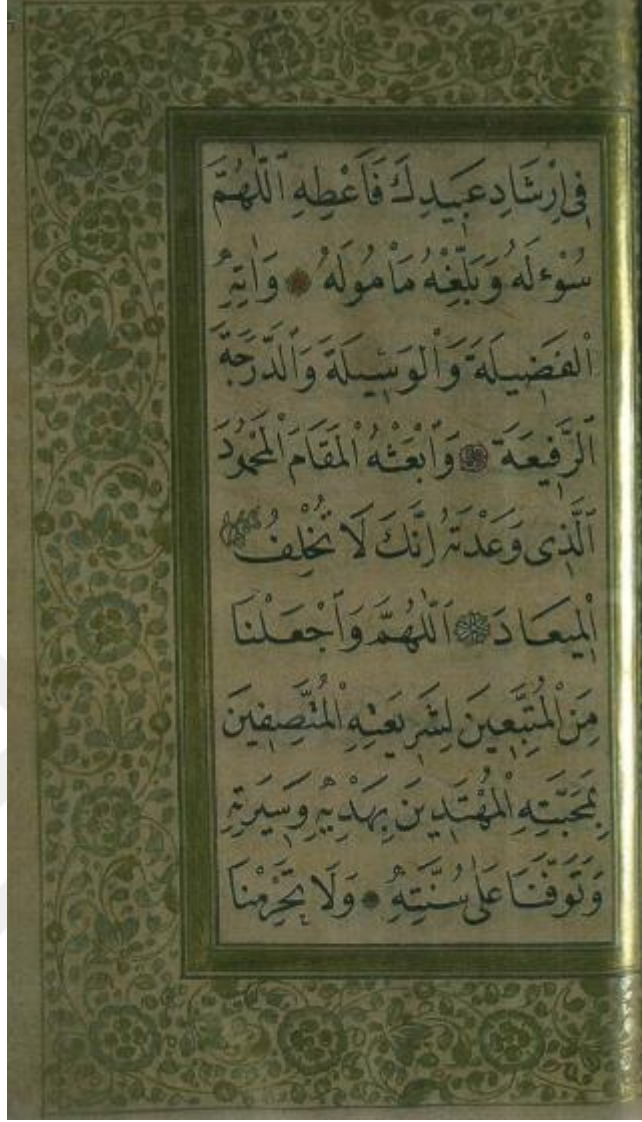 فِى اِرْشَادِ عَبِيدِكَ فَاَعْطِهِ اَللّٰهُمَّ
سُوْءلَهُ وَبَلِّغْهُ مَاْمُولَهُ وَاٰتِهِ
الْفَضِيلَةَ وَالْوَسِيلَةَ وَالدَّرَجَةَ
الرَّفِيعَةَ وَابْعَثْهُ الْمَقَامَ الْمَحْمُودَ
الَّذِى وَعَدْتَهُ اِنَّكَ لَا تُخْلِفُ
الْمِيعَادَ اَللّٰهُمَّ وَاجْعَلْنَا
مِنَ الْمُتَّبِعِينَ لِشَرِيعَتِهِ الْمُتَّصِفِينَ
بِمَحَبَّتِهِ الْمُهْتَدِينَ بِهَدْيِهِ وَسِيرَتِهِ
وَتَوَفَّنَا عَلٰى سُنَّتِهِ وَلَا تَحْرِمْنَا